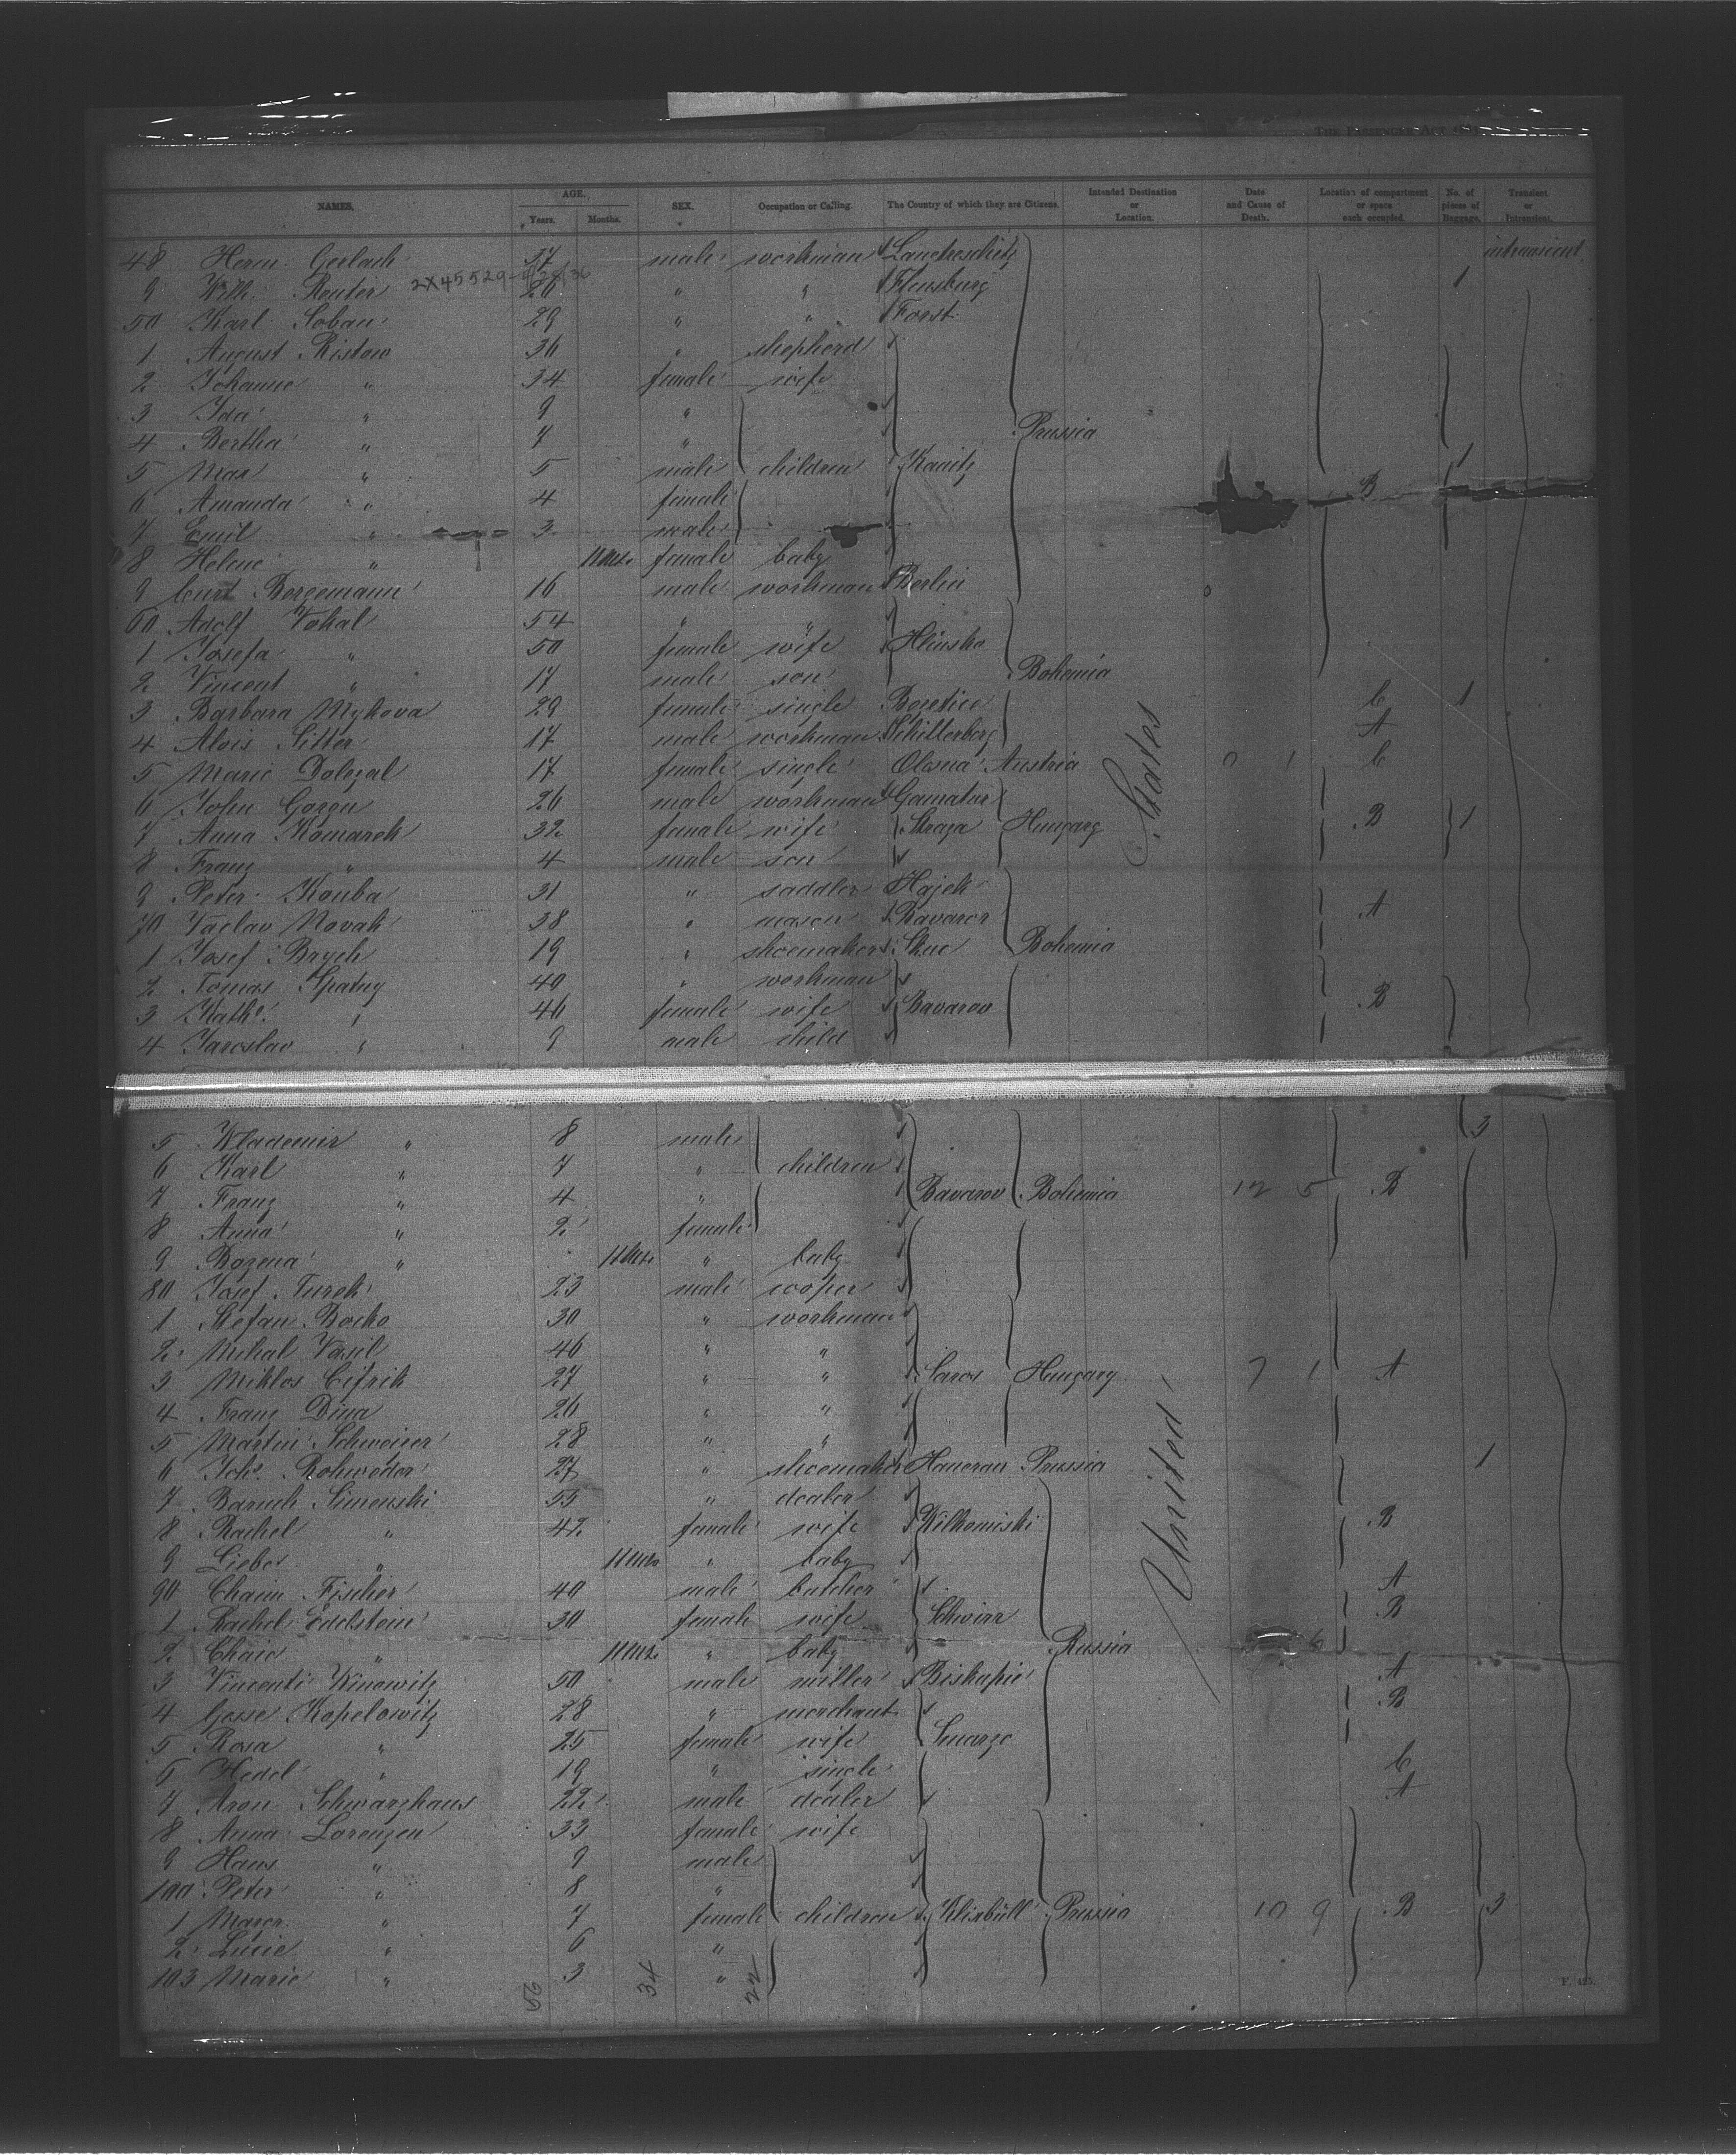 THE PASSENGER ACT
NAMES. AGE. Years. Months. SEX. Occupation or Calling. The Country of which they are Citizens. Intended Destination or Location. Date and Cause of Death. Location of compartment or space each occupied. No. of pieces of Baggage. Transient or Intransient.
48 Herm. Gerlach 37 male workman intransient
2X45529
9 Wilh. Reuter 26 " " Flensburg 1
50 Karl Soban 29 " " Forst
1 August Ristow 36 " shepherd
2 Johanne " 34 female wife
3 Ida " 9 "
4 Bertha " 7 " Prussia
5 Max " 5 male children Kanitz 1
6 Amanda " 4 female B
7 Emil " 3 male
8 Helene " 11 Mts. female baby
9 Curt Borgemann 16 male workman Berlin
60 Adolf Vokal 54 " "
1 Josefa " 50 female wife Hlinsko
2 Vincent " 17 male son Bohemia
3 Barbara Mykova 29 female single Boretice C 1
4 Alois Sitter 17 male workman Schitterberg A
5 Marie Dolezal 17 female single Olesna Austria 0 1 C
6 John Gorgn 26 male workman Gamatur
7 Anna Komarek 32 female wife Straza Hungary B 1
8 Franz " 4 male son
9 Peter Kouba 31 " saddler Hajek
70 Vaclav Novak 38 " mason Bavarov A
1 Josef Brych 19 " shoemaker Skuc Bohemia
2 Tomas Spatny 40 " workman
3 Kath. " 46 female wife Bavarov B
4 Jaroslav " 9 male child
5 Wlademir " 8 male 3
6 Karl " 7 " children
7 Franz " 4 " Bavarov Bohemia 12 5 B
8 Anna " 2 female
9 Bozena " 11 Mts. " baby
80 Josef Turek 23 male cooper
1 Stefan Bocko 30 " workman
2 Mihal Vasil 46 " "
3 Miklos Cifrik 27 " " Saros Hungary 7 1 A
4 Franz Dina 26 " "
5 Martin Schweizer 28 " "
6 Joh. Rohweder 27 " shoemaker Hanerau Prussia 1
7 Baruch Simenski 55 " dealer
8 Rachel " 42 female wife Wilkomiski B
9 Liebe " 11 Mts. " baby
90 Chaim Fischer 40 male butcher A
1 Rachel Edelstein 30 female wife Schwirr B
2 Chaie " 11 Mts. " baby Russia 6
3 Vincenti Kinowitz 50 male miller Biskupie A
4 Gosse Kopelowitz 28 " merchant B
5 Rosa " 25 female wife Smarzo
6 Hedel " 19 " single C
7 Aron Schwarzhaus 22 male dealer A
8 Anna Lorenzen 33 female wife
9 Hans " 9 male
100 Peter " 8 "
1 Maren " 7 female children Klixbüll Prussia 10 9 B 3
2 Lucie " 6 "
103 Marie " 3 "
United States
29 34 22
F. 425.